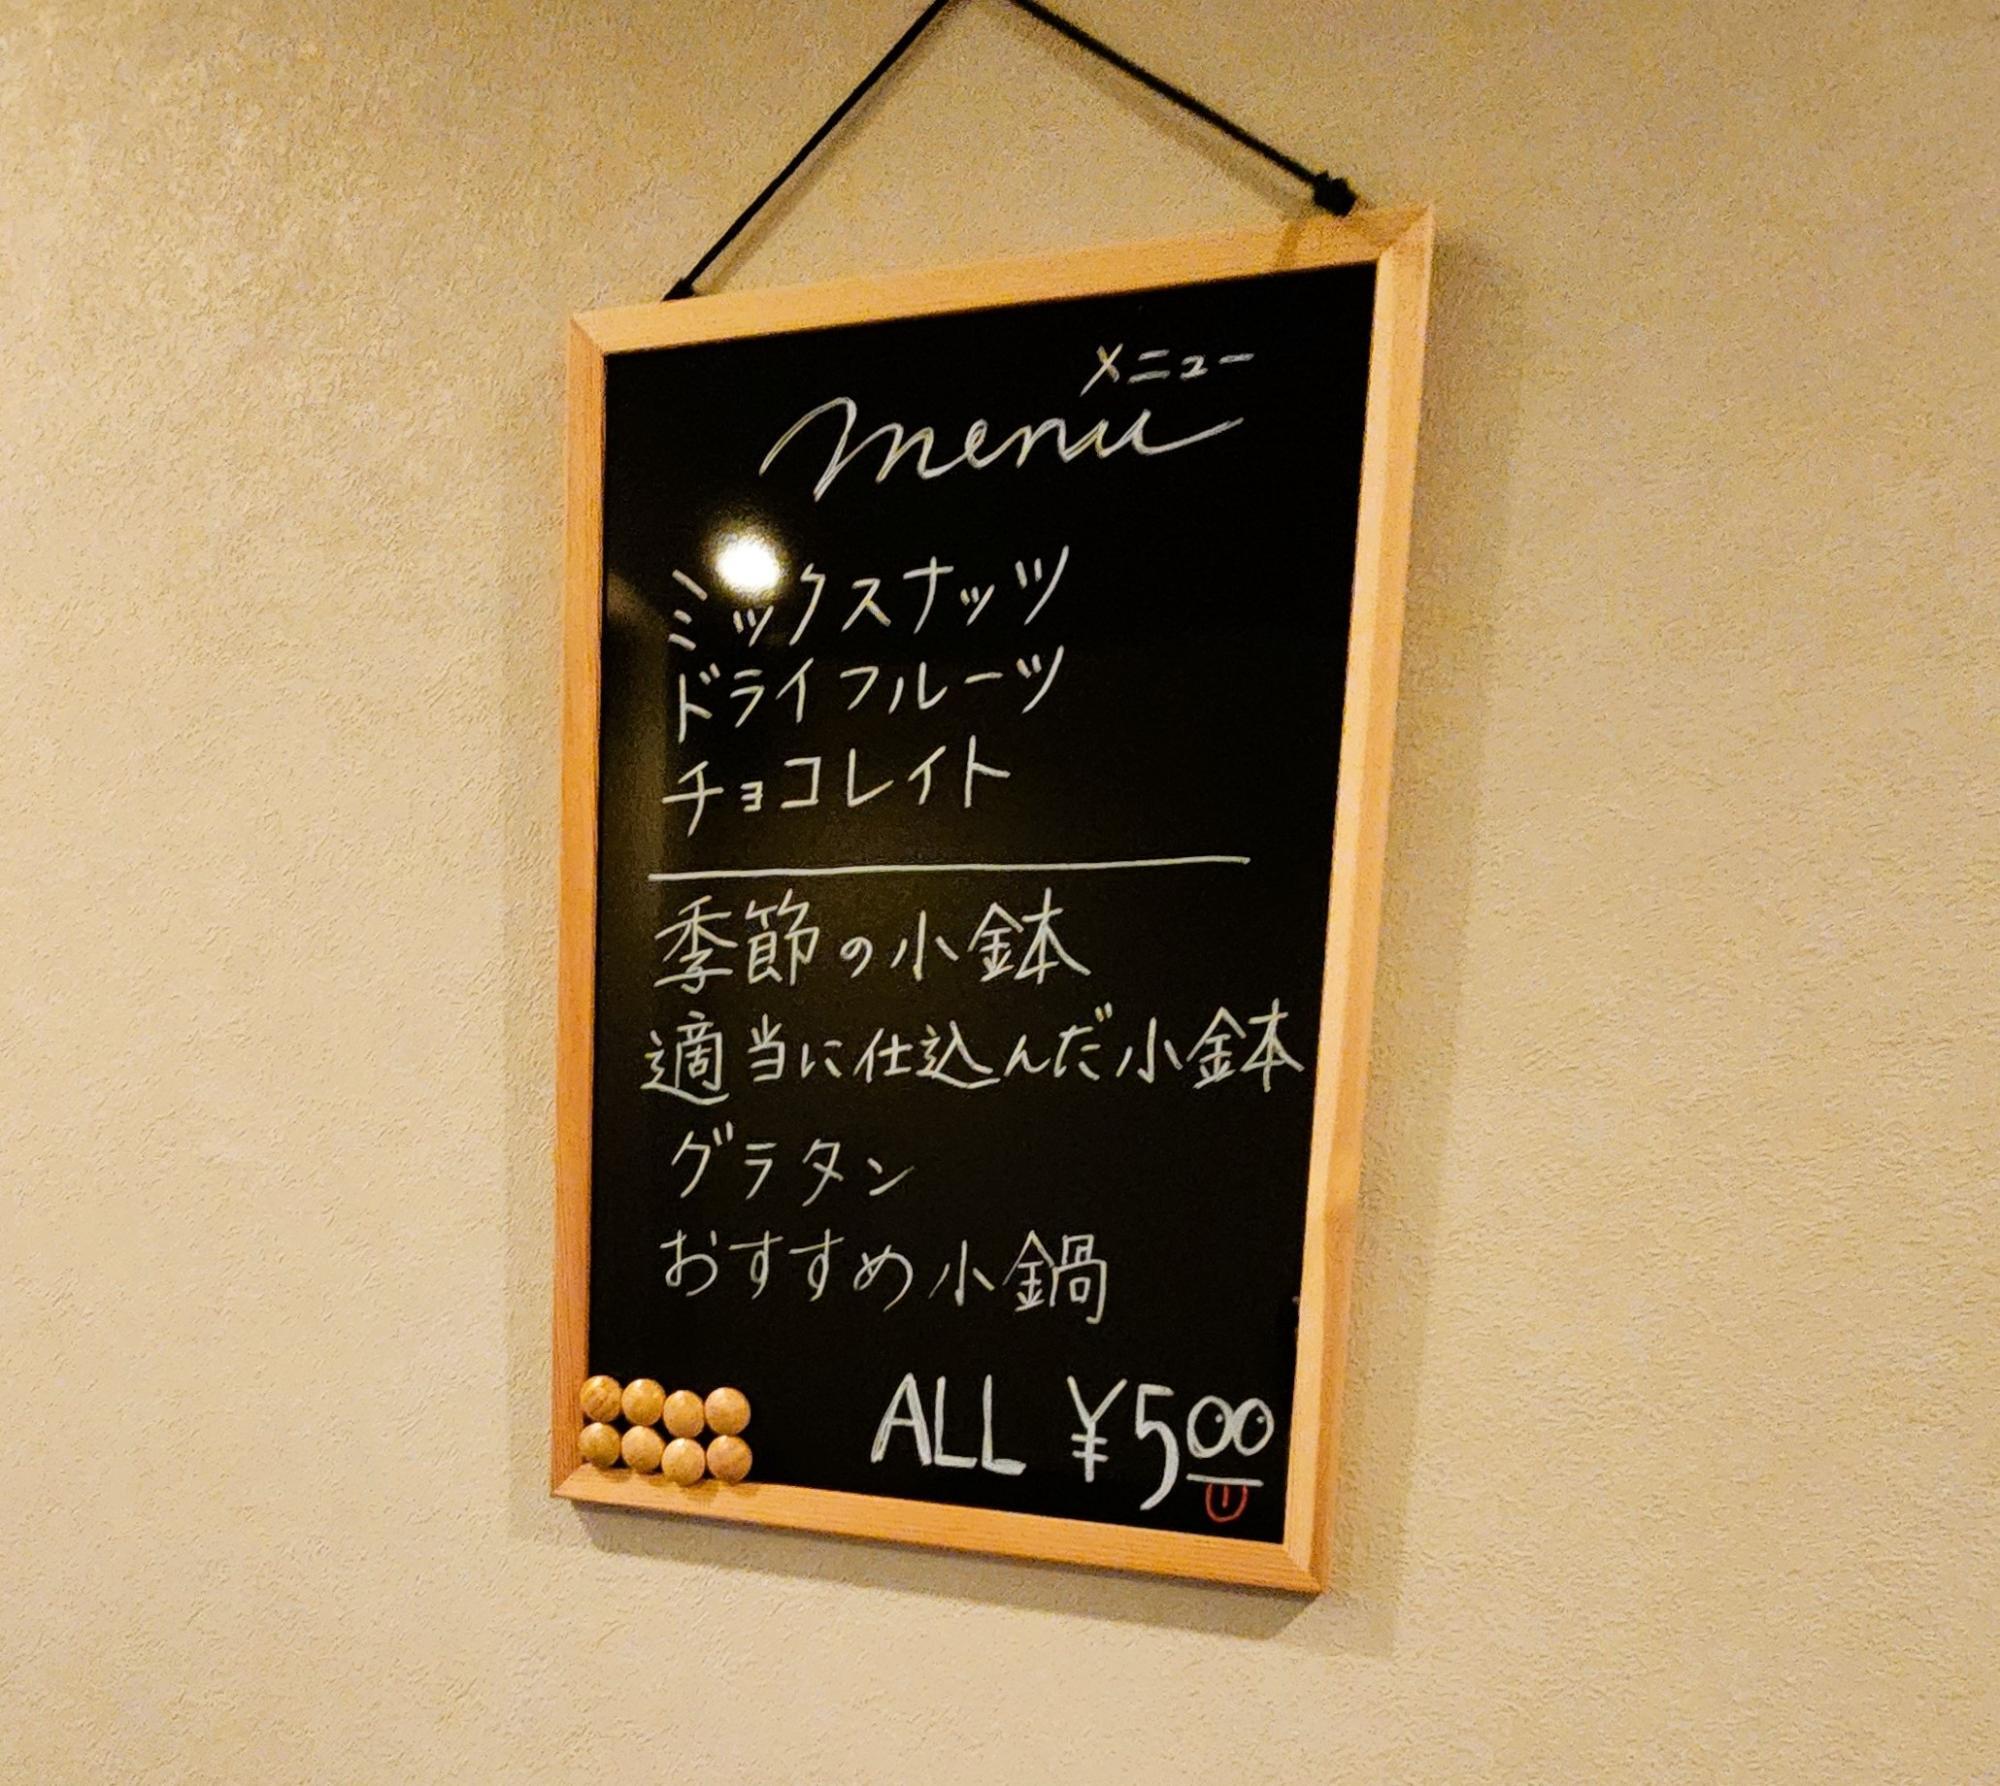 メニュー
menu
ミックスナッツ
ドライフルーツ
チョコレイト
季節の小鉢
適当に仕込んだ小鉢
グラタン
おすすめ小鍋
ALL ¥500